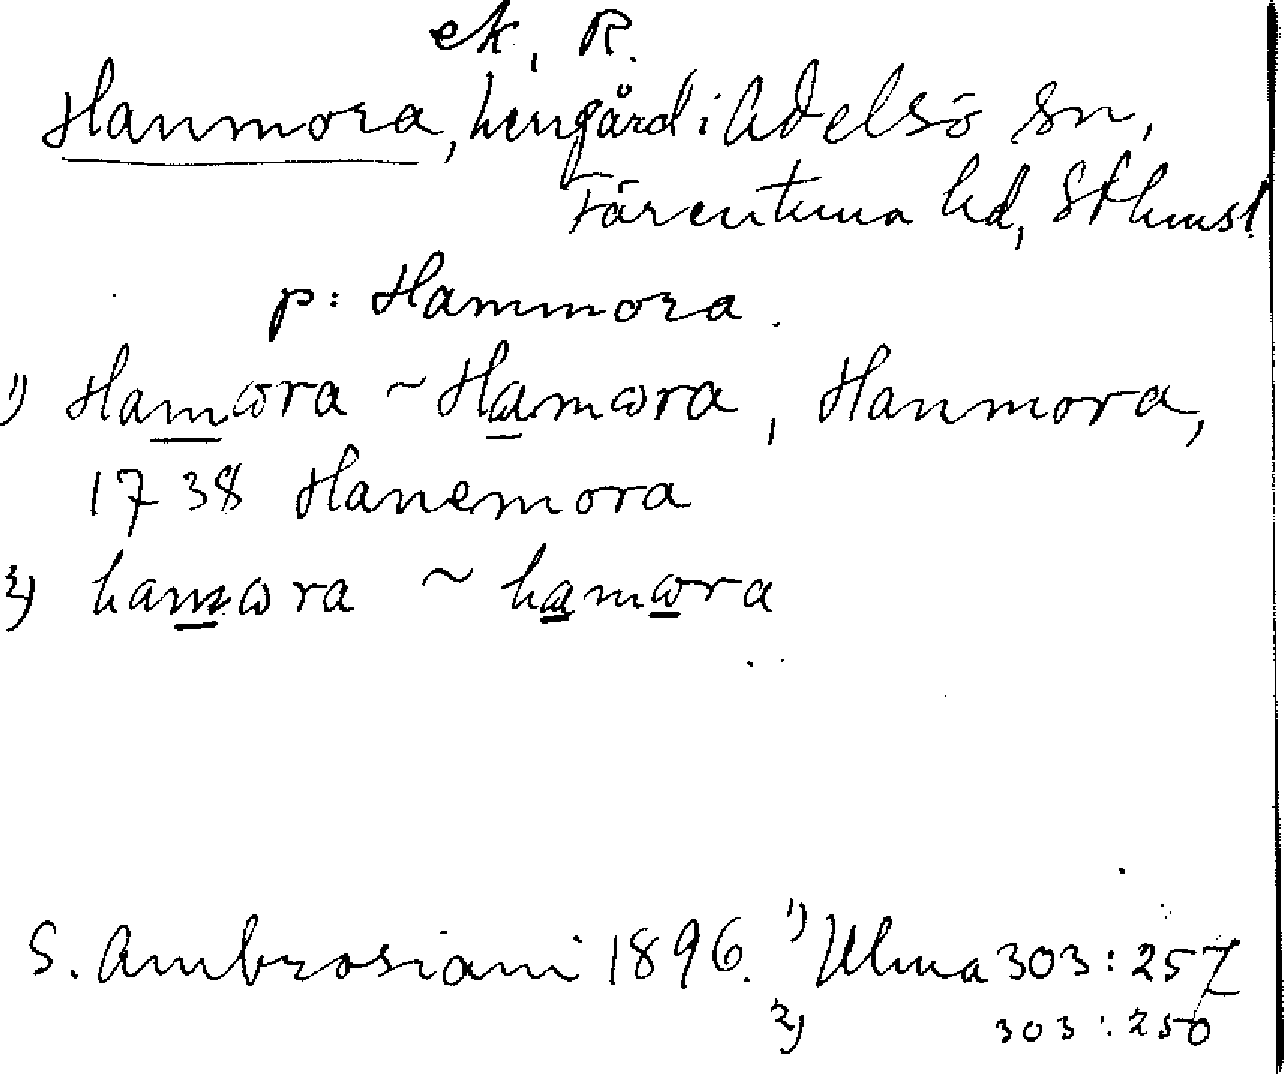 ek, R.
Hanmora, hemgård i Adelsö sn,
Färentuna hd, Sthmsl.
p: Hammora.
1) Hamωra ~ Hamωra, Hanmora,
1738 Hanemora
2) hamωra ~ hamωra
S. Ambrosiani 1896. 1) Ulma 303:257
2) 303:250